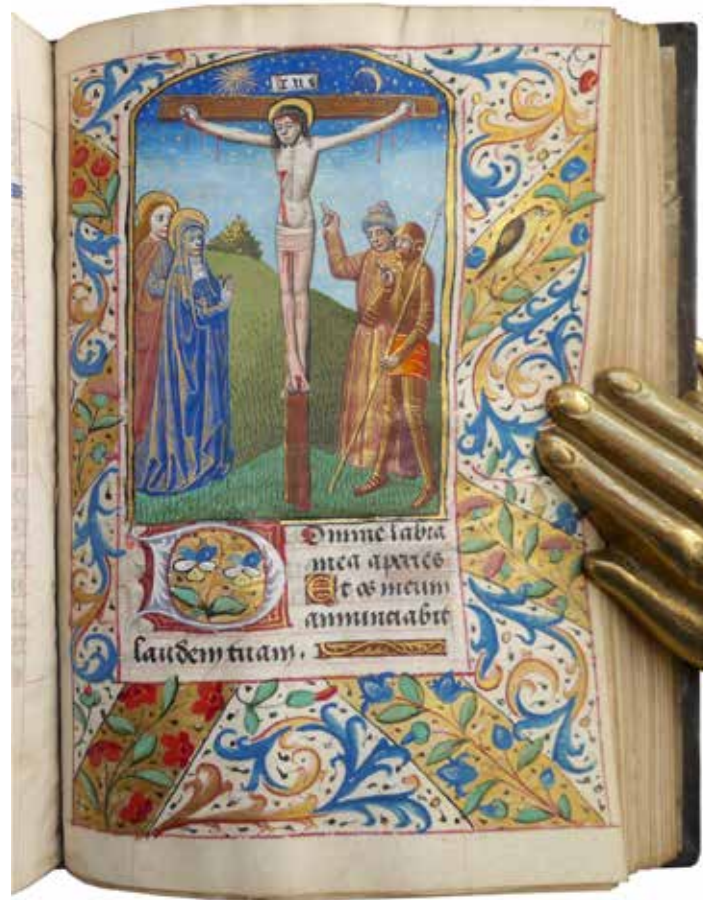 Domine labia
mea aperies
Et os meum
annunciabit
laudem tuam.